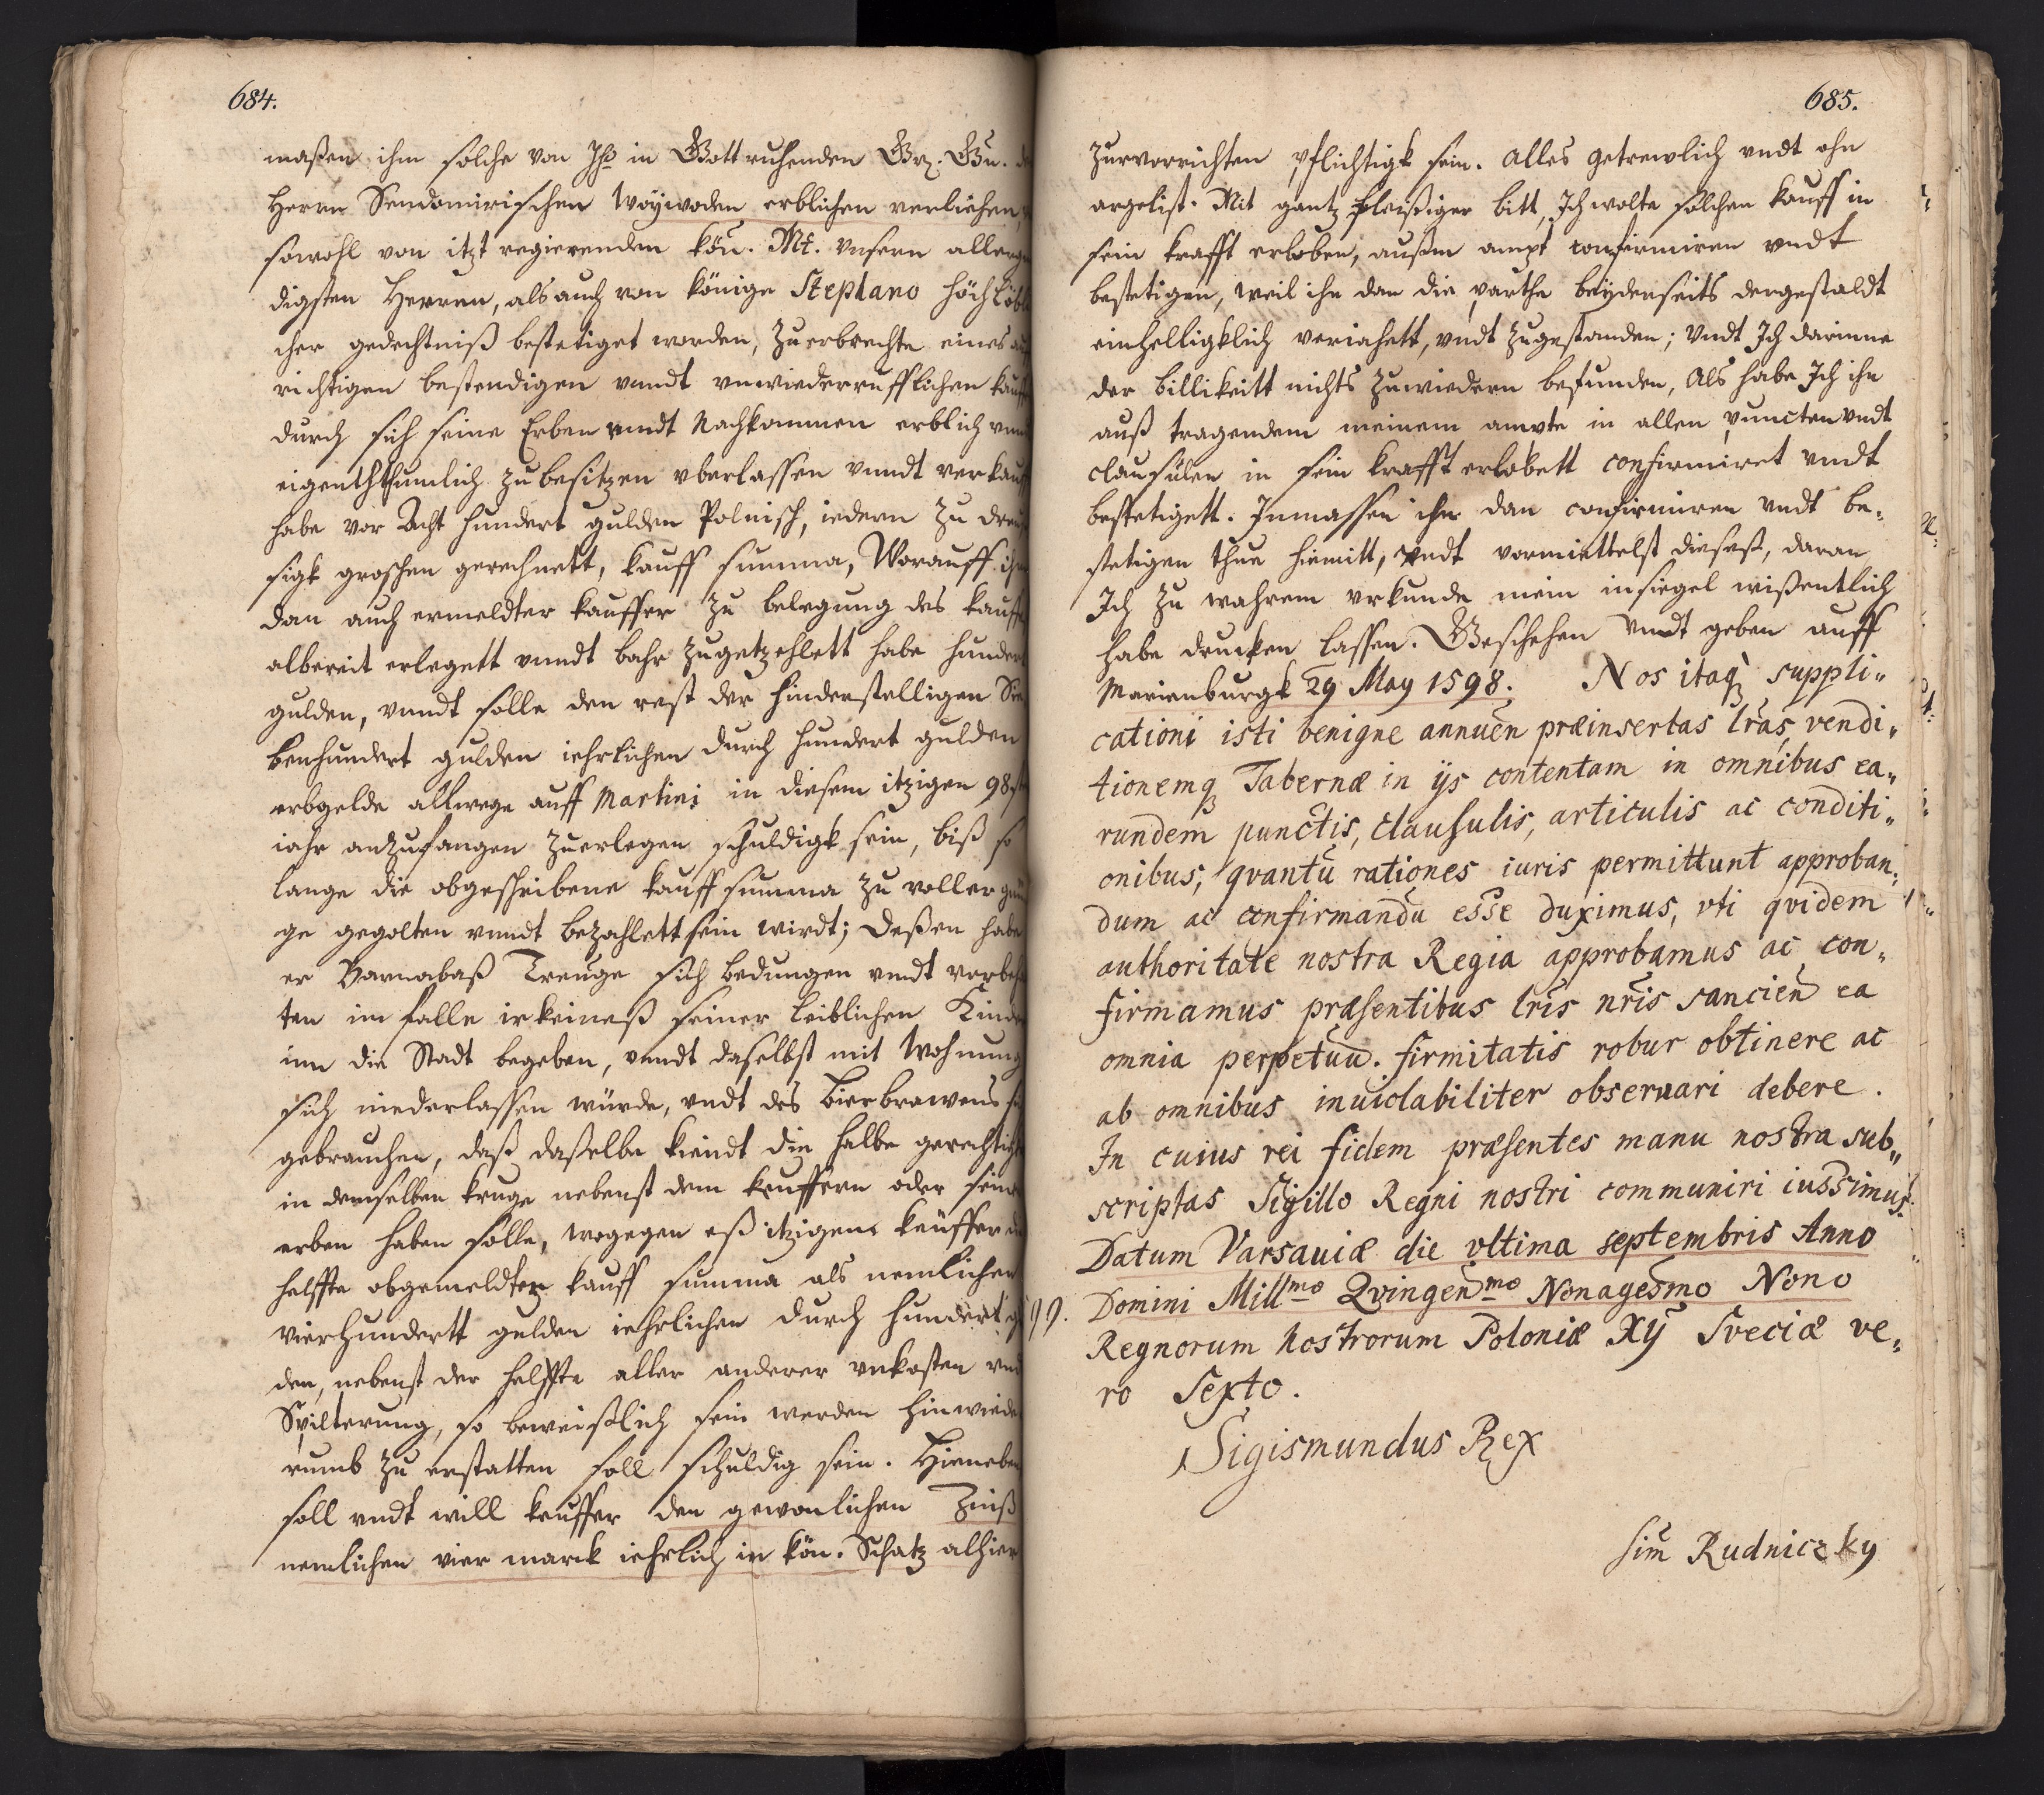 684.
maßen ihm solche von Ihr in Gott ruhenden Grz. Gn.
Herrn Sendomirischen Woÿwoden erblichen verliehen,
sowohl von itzt regierenden kön. Mt. vnsern alleng
digsten Herren, als auch von könige Stephano höchLöbl
cher gedechtniß bestetiget worden, zu erbrechte eines
richtigen bestendigen vnndt vnwiederrufflichen kauff
durch sich seine Erben vnndt Nachkommen erblich vnn
eigenththumlich zubesitzen vberlassen vnndt verkauff
habe vor Acht hundert gulden Polnisch, iedern zu drei
sigk groschen gerechnett, kauff summa, Worauff ihm
dan auch ermeldter kauffer zu belegung des kauff
albereit erlegett vnndt bahr zugetzehlett habe hundert
gulden, vnndt solle den rest der hinderstelligen Sie
benhundert gulden iehrlichen durch hundert gulden
erbgelde allwege auff Martini in diesem itzigen 98st
iahr anzufangen zuerlegen schuldigk sein, biß so
lange die obgeschribene kauff summa zu voller gnü
ge gegolten vnndt bezahlett sein wirdt; Deßen habe
er Barnabaß Treuge sich bedungen vndt vorbeh
ten im falle irkeineß seiner leiblichen Kinde
inn die Stadt begeben, vnndt daselbst mit Wohnung
sich niederlassen würde, vndt des Bierbrawens
gebrauchen, daß daßelbe kindt die halbe gerechtig
in demselben kruge nebenst dem keuffern oder seine
erben haben solle, wogegen eß itzigem keüffer
helffte obgemeldter kauff summa als nemlichen
vierhundertt gulden iehrlichen durch hundert g
den, nebenst der helffte aller anderer vnkosten vnd
Spilterung, so beweißlich sein werden hinwiede
rumb zu erstatten soll schuldig sein. Hieneben
soll vndt will keuffer den gewonlichen Zinß
nemlichen vier marck iehrlich in kön. Schatz alhier
685.
zurvorrichten pflichtigk sein. Alles getrewlich vndt ohn
argelist. Mit gantz fleißiger bitt, Ich wolte solchen kauff in
sein krafft erloben, außm ampt confirmiren vndt
bestetigen, weil ihn dan die parthe beÿderseits dergestaldt
einhelligklich veriahett, vndt zugestanden; Vndt Ich darinne
der billikeitt nichts zuwiedern befunden, Als habe Ich ihn
auß tragendem meinem ampte in allen puncten vndt
clausulen in sein krafft erlobett confirmiret vndt
bestetigett. Inmassen ihn dan confirmiren vndt be„
stetigen thue hiemitt, vndt vormittelst dieseß, daran
Ich zu wahrem vrkunde mein insiegel wißentlich
habe drucken lassen. Geschehen Vndt geben auff
Marienburgk 29 May 1598. Nos itaq suppli„
cationi isti benigne annuen̄ præinsertas lrãs, vendi„
tionemq Tabernæ in ijs contentam in omnibus ea„
rundem punctis, clausulis, articulis ac conditi„
onibus, qvantū rationes iuris permittunt approban„
dum ac confirmandū esse duximus, vti qvidem
authoritate nostra Regia approbamus ac con„
firmamus præsentibus lrīs nrīs sancien̄ ea
omnia perpetuū. firmitatis robur obtinere ac
ab omnibus inuiolabiliter obseruari debere.
In cuius rei fidem præsentes manu nostra sub„
scriptas Sigillo Regni nostri communiri iussimus.
Datum Varsauiæ die vltima septembris Anno
99. Domini Millmo Qvingenmo Nonagesmo Nono
Regnorum nostrorum Poloniæ XIJ Sveciæ ve„
ro Sexto.
Sigismundus Rex
Sim Rudniczky